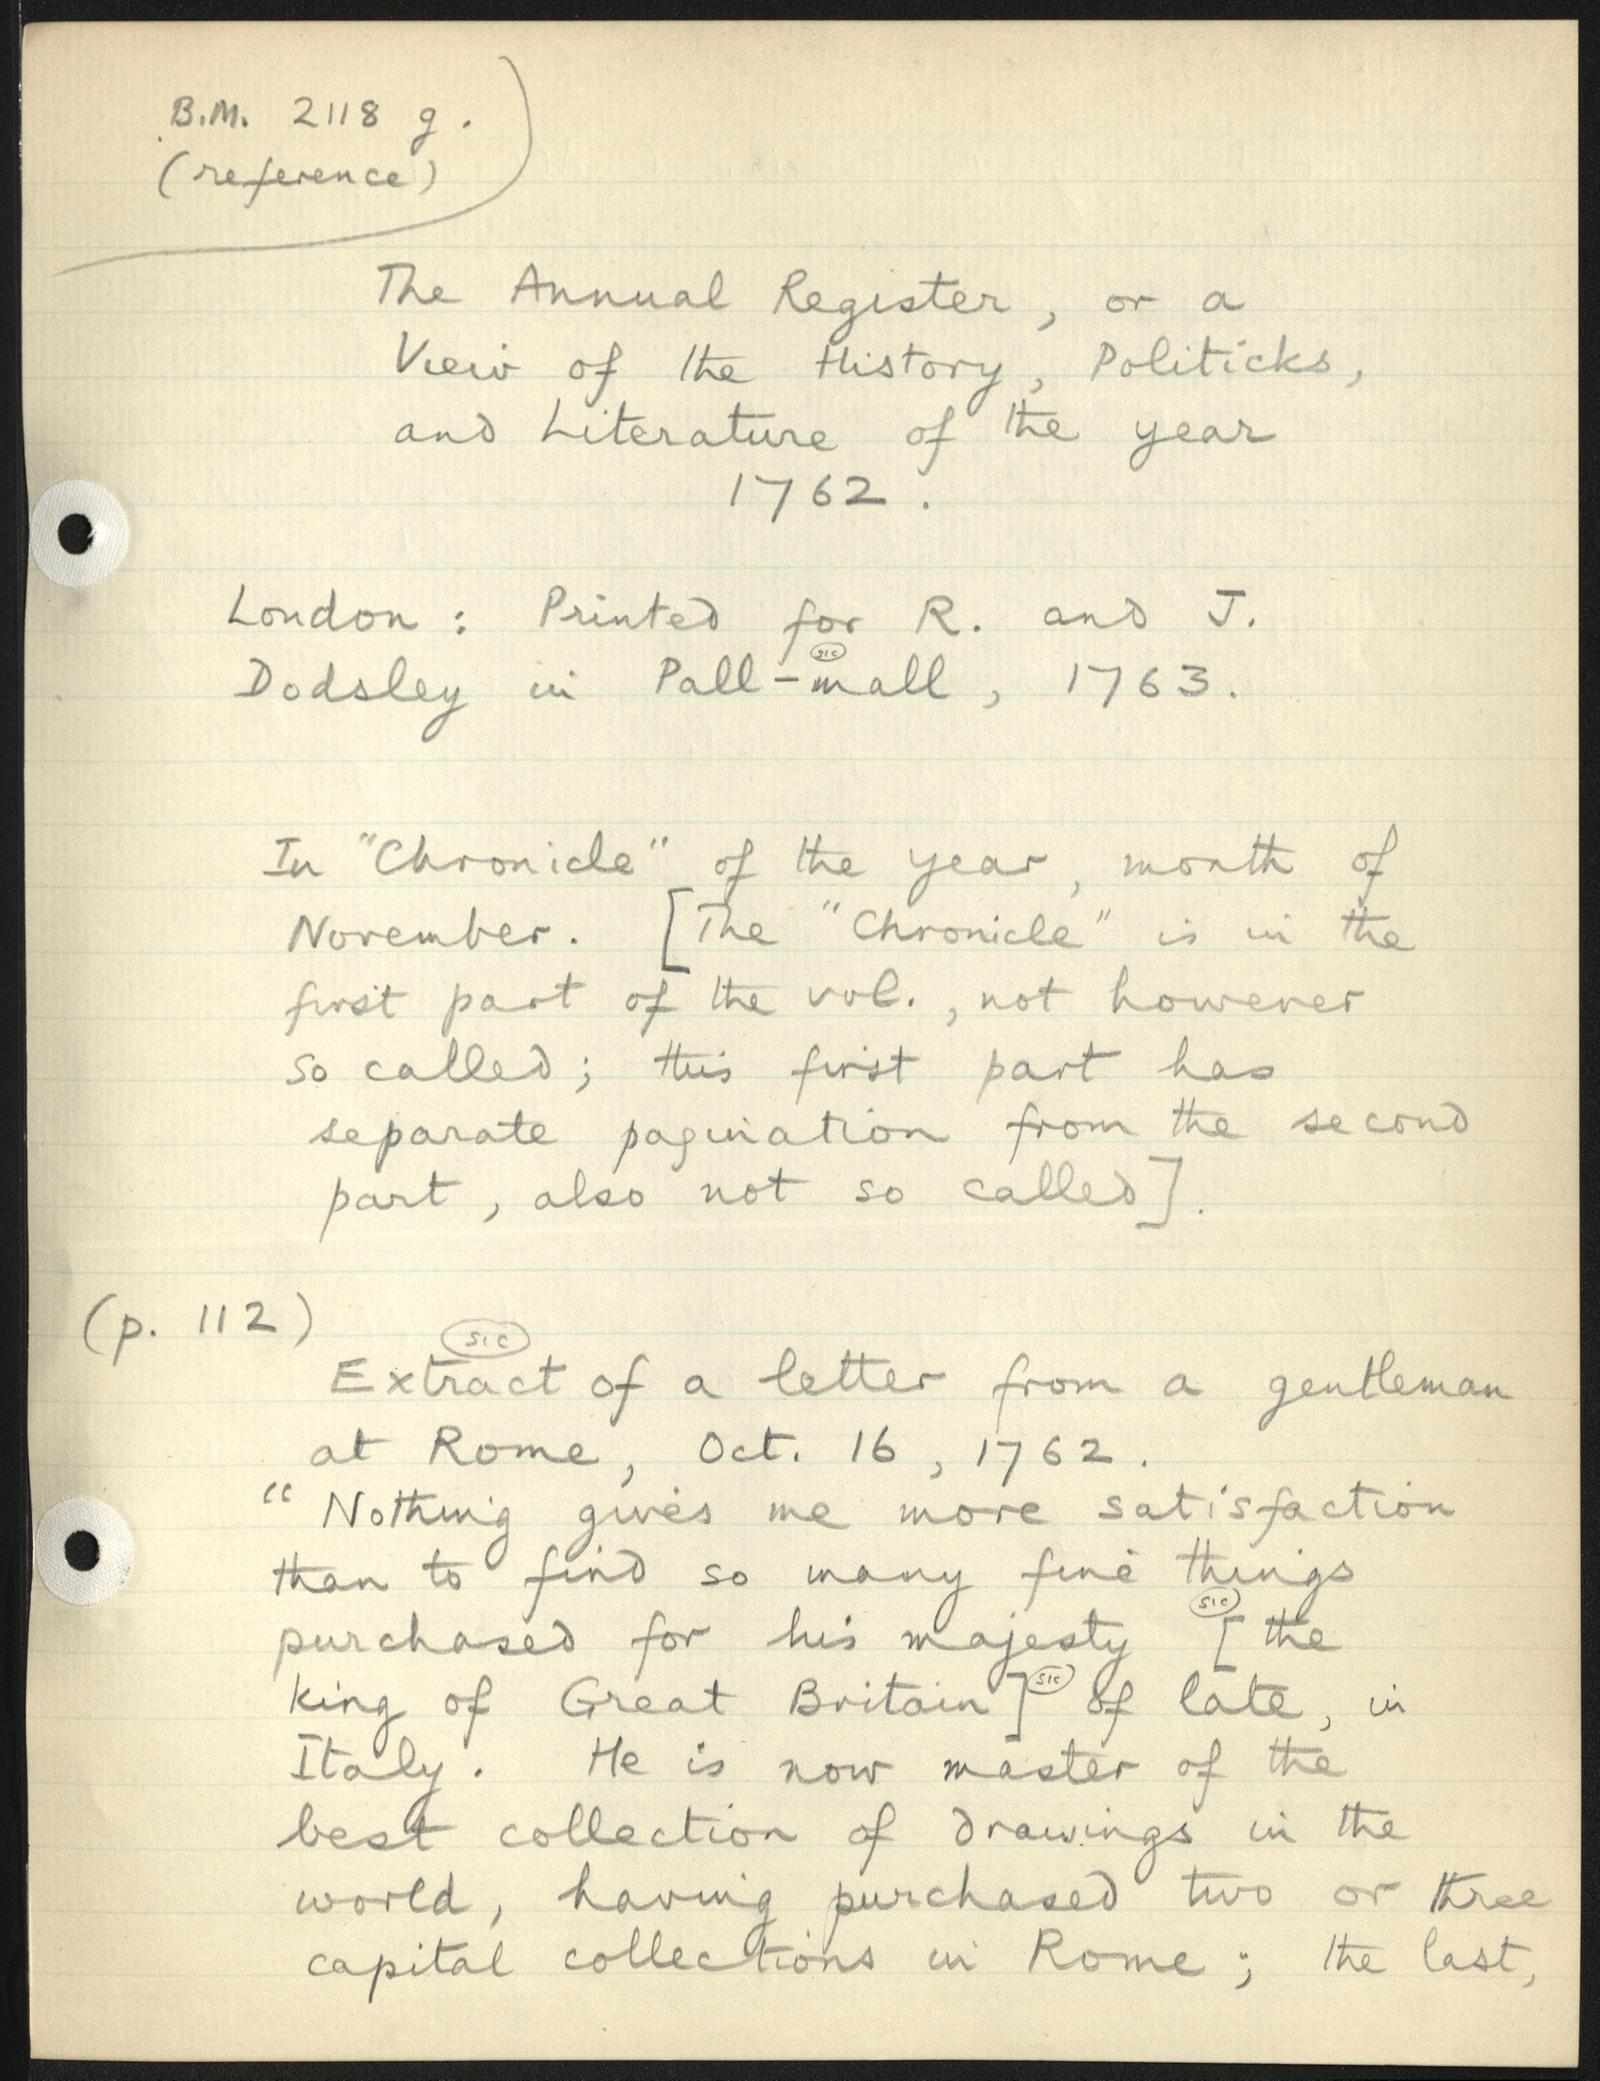 B.M. 2118 g.
(reference)
The Annual Register, or a
View of the History, Politicks,
and Literature of the year
1762.
London: Printed for R. and J.
sic
Dodsley in Pall-mall, 1763.
In "Chronicle" of the year, month of
November. [The "Chronicle" is in the
first part of the vol., not however
so called; this first part has
separate pagination from the second
part, also not so called].
(p. 112)
sic
Extract of a letter from a gentleman
at Rome, Oct. 16, 1762.
"Nothing gives me more satisfaction
than to find so many fine things
sic
purchased for his majesty [the
king of Great Britain] sic of late, in
Italy. He is now master of the
best collection of drawings in the
world, having purchased two or three
capital collections in Rome; the last,